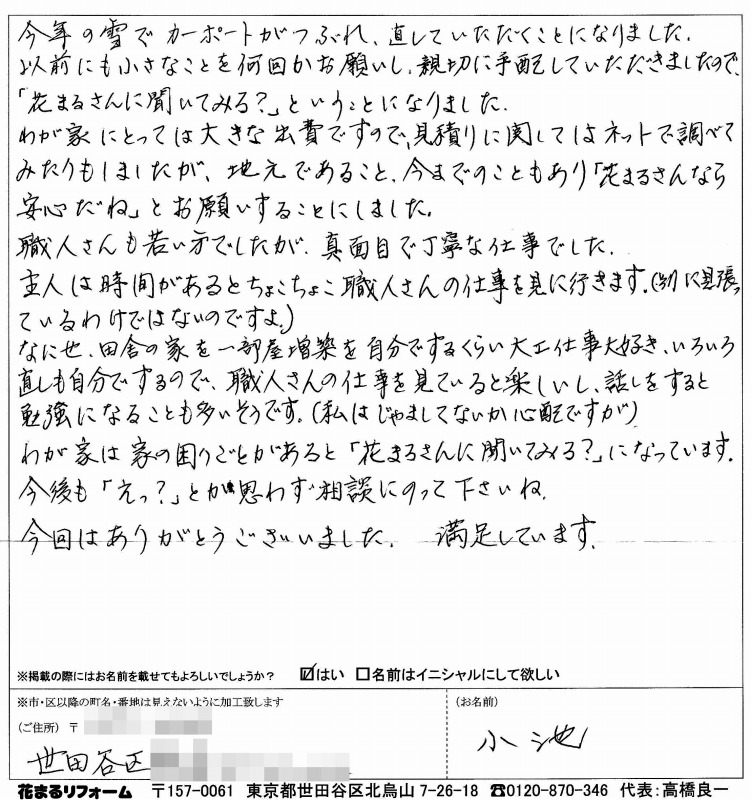 今年の雪でカーポートがつぶれ、直していただくことになりました。
以前にも小さなことを何回かお願いし、親切に手配していただきましたので、
「花まるさんに聞いてみる?」ということになりました。
わが家にとっては大きな出費ですので、見積りに関してはネットで調べて
みたりもしましたが、地元であること、今までのこともあり「花まるさんなら
安心だね」とお願いすることにしました。
職人さんも若い方でしたが、真面目で丁寧な仕事でした。
主人は時間があるとちょこちょこ職人さんの仕事を見に行きます。(別に見張っ
ているわけではないのですよ。)
なにせ、田舎の家を一部屋増築を自分でするくらい大工仕事大好き、いろいろ
直しも自分でするので、職人さんの仕事を見ていると楽しいし、話しをすると
勉強になることも多いそうです。(私はじゃましてないか心配ですが)
わが家は家の困りごとがあると「花まるさんに聞いてみる?」になっています。
今後も「えっ?」とか思わず相談にのって下さいね。
今回はありがとうございました。 満足しています。
※掲載の際にはお名前を載せてもよろしいでしょうか? ☑はい □名前はイニシャルにして欲しい
※市・区以降の町名・番地は見えないように加工致します
(ご住所) 〒
世田谷区
(お名前)
小池
花まるリフォーム 〒157-0061 東京都世田谷区北烏山 7-26-18 ☎0120-870-346 代表:高橋良一